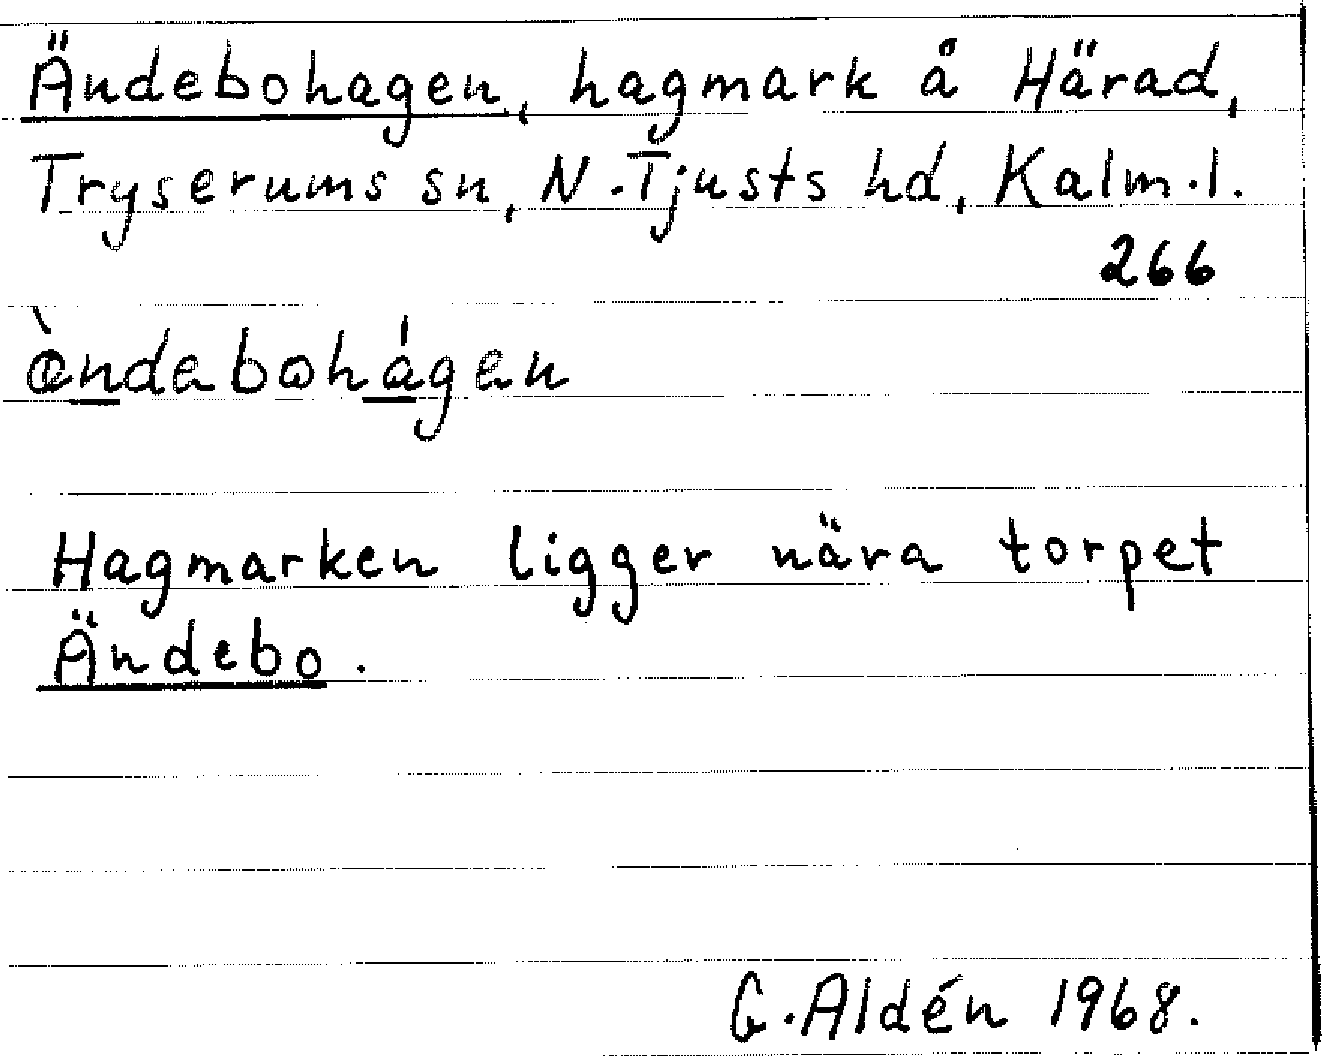 Ändebohagen, hagmark å Härad,
Tryserums sn, N. Tjusts hd, Kalm. l.
266
æ̀ndebohágen
Hagmarken ligger nära torpet
Ändebo.
G. Aldén 1968.